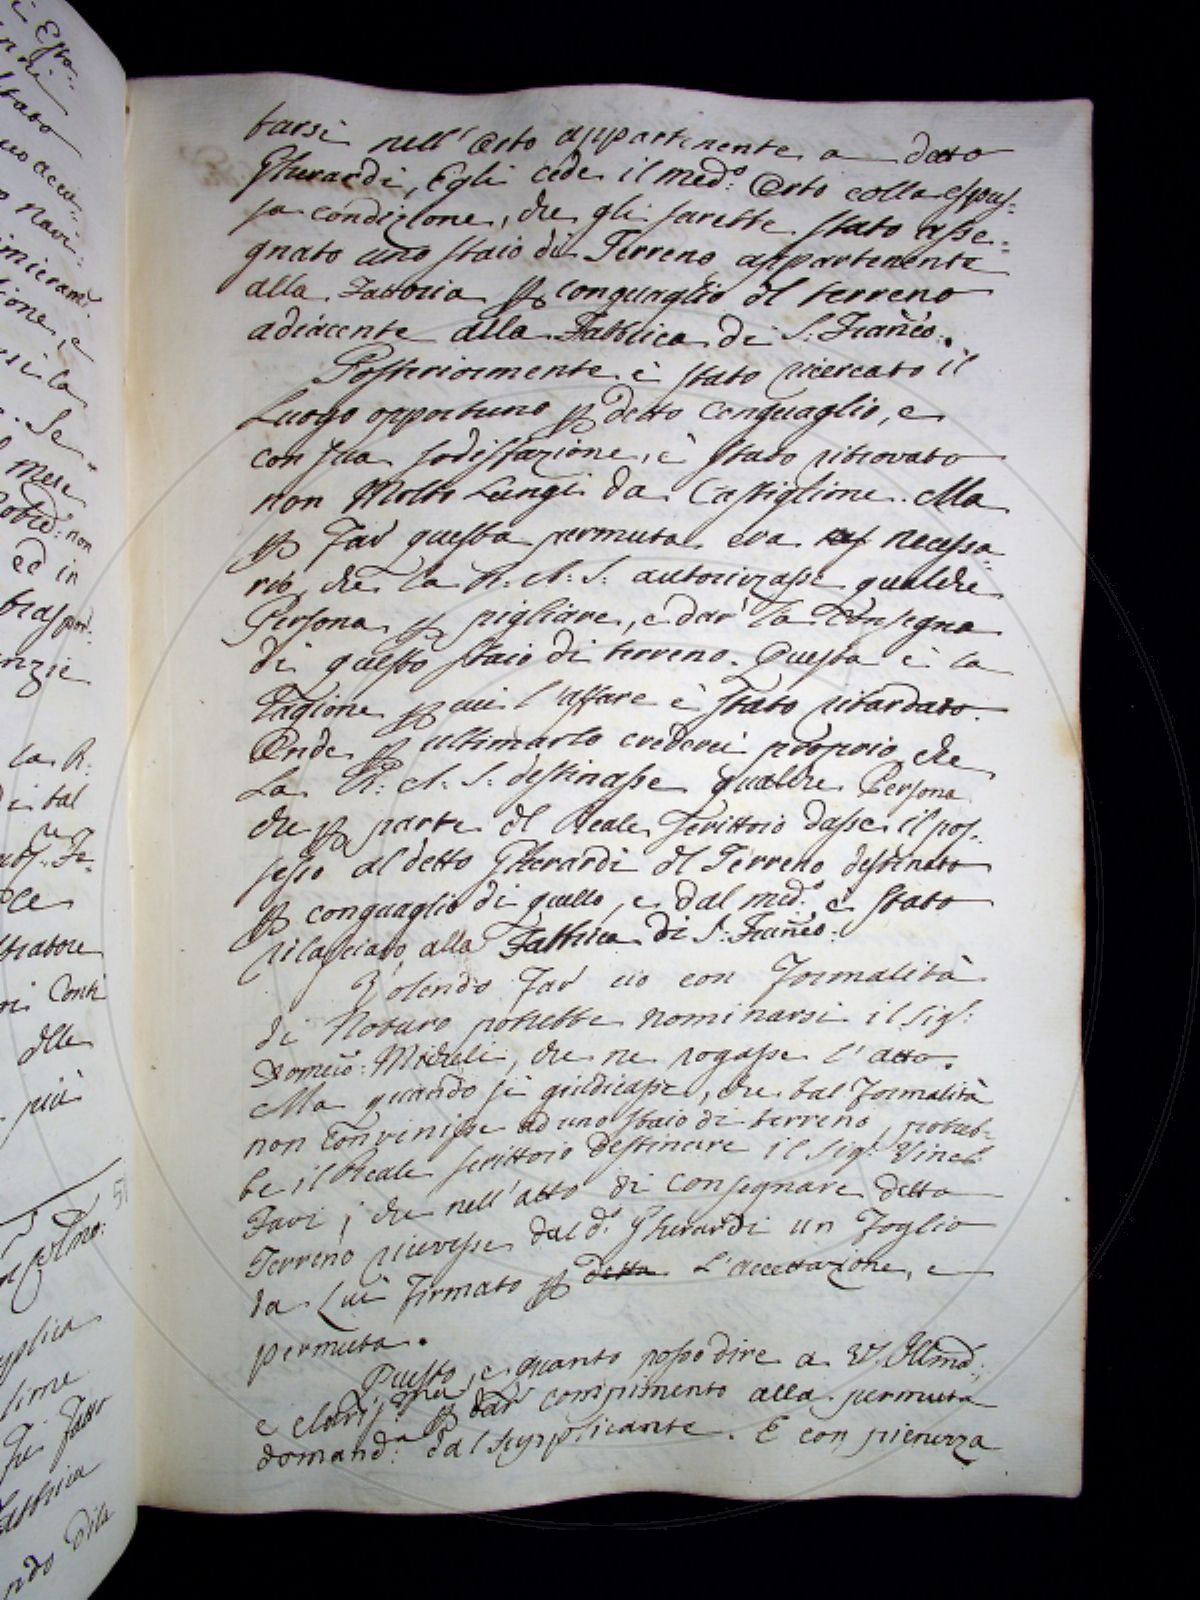 tarsi nell'Orto appartenente a detto
Gherardi, Egli cede il med.o Orto colla espres-
sa condizione, che gli sarebbe stato asse-
gnato uno staio di Terreno appartenente
alla Fattoria p conguaglio dl terreno
adiacente alla Fabbrica di S: Franco:.
Posteriormente è stato ricercato il
Luogo opportuno p detto conguaglio, e
con sua sodisfazione, è stato ritrovato
non Molto Lungi da Castiglione. Ma
p far questa permuta era necessa-
rio, che la R: A: S: autorizzasse qualche
Persona p pigliare, e dar la Consegna
di questo staio di terreno. Questa è la
ragione p cui l'affare è stato ritardato.
Onde p ultimarlo crederei proprio che
La R: A: S: destinasse qualche Persona
che p parte dl Reale Scrittoio dasse il pos-
sesso al detto Gherardi dl Terreno destinato
p conguaglio di quello, e dal med.o è stato
rilasciato alla Fabbrica di S: Franco:
Volendo far ciò con formalità
di Notaro potrebbe nominarsi il Sig:
Domco: Micheli, che ne rogasse l'atto.
Ma quando si giudicasse, che tal formalità
non convenisse ad uno staio di terreno, potreb-
be il Reale scrittoio destinare il Sig: Vinc:
Favi; che nell'atto di consegnare detto
Terreno ricevesse dal d.o Gherardi un Foglio
da Lui firmato p detta L'accettazione, e
permuta.
Questo, e quanto posso dire a V. Illma:
e Clarissma p dar compimento alla permuta
domand.a dal supplicante. E con pienezza